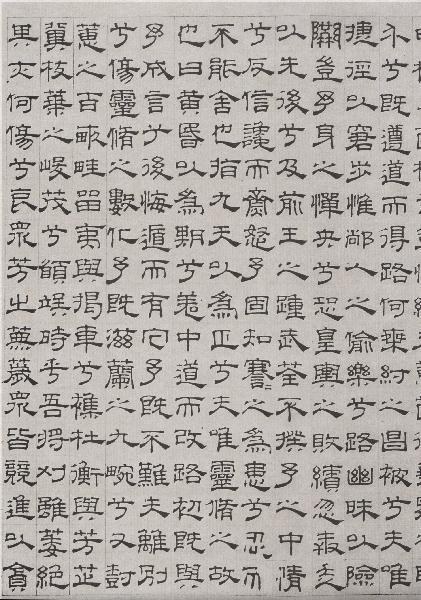 介兮既遵道而得路何桀紂之昌被兮夫唯
捷徑以窘步惟人之偷樂兮路幽昧以險
隘豈予身之憚央兮恐皇輿之敗績忽奔走
以先後兮及前王之踵武荃不揆予之中情
兮反信讒而齋怒予固知謇〻之為患兮忍而
不能舍也指九天以為正兮夫唯靈脩之故
也曰黃昏以為期兮羌中道而改路初既與
予成言兮後悔遁而有它予既不難夫離別
兮傷靈脩之數化予既滋蘭之九畹兮又樹
蕙之百畝畦留夷與揭車兮雜杜衡與芳芷
冀枝葉之峻茂兮願竢時乎吾將刈雖萎絕
其亦何傷兮哀眾芳之蕪薉眾皆競進以貪